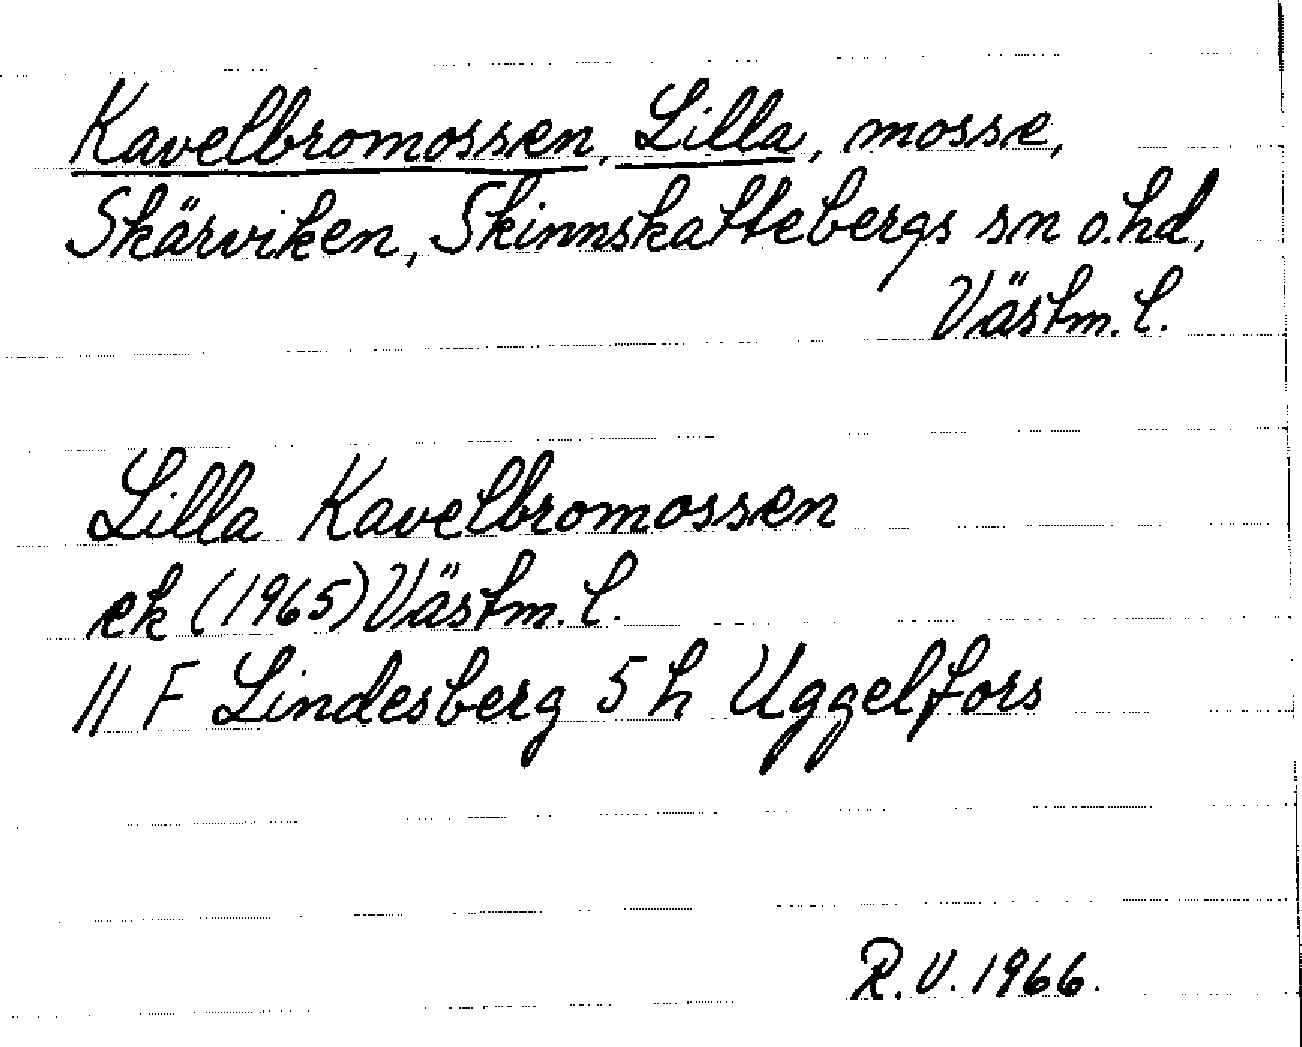 Kavelbromossen, Lilla, mosse,
Skärviken, Skinnskattebergs sn o. hd,
Västm. l.
Lilla Kavelbromossen
ek (1965) Västm. l.
11 F Lindesberg 5 h Uggelfors
R.V. 1966.